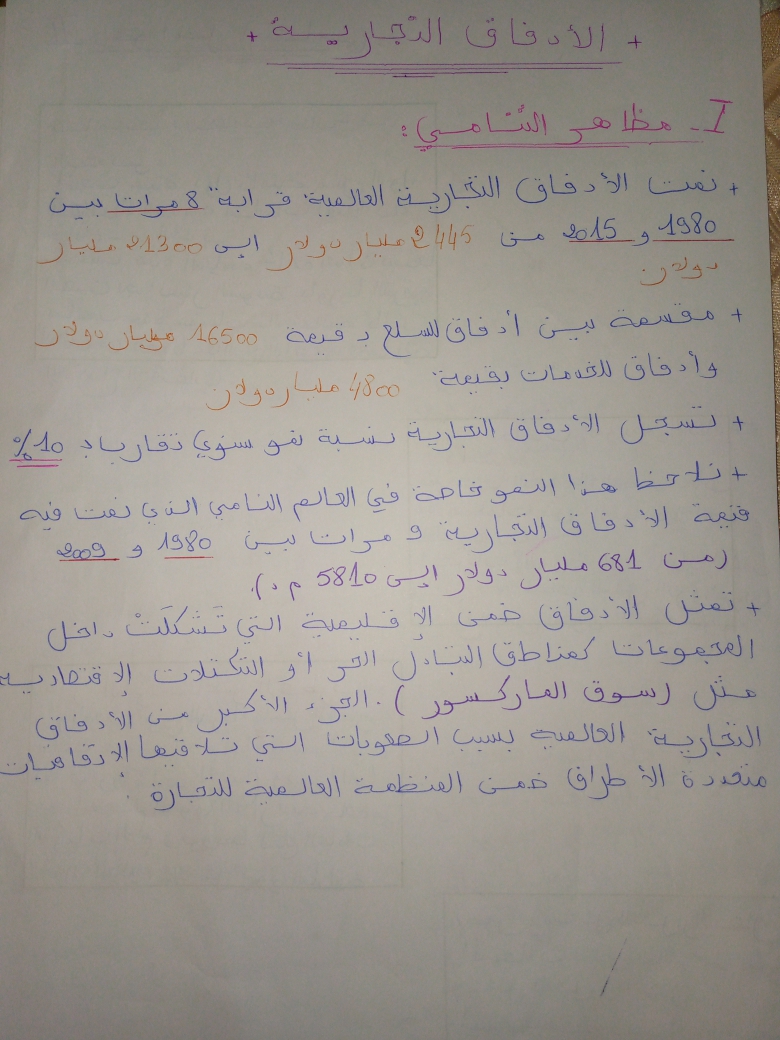 + الأدفاق التجارية +
I - مظاهر التنامي:
+ نمت الأدفاق التجارية العالمية قرابة 8 مرات بين
1980 و 2015 من 2445 مليار دولار إلى 21300 مليار
دولار
+ مقسمة بين أدفاق لسلع بقيمة 16500 مليار دولار
وأدفاق للخدمات بقيمة 4800 مليار دولار
+ تسجل الأدفاق التجارية نسبة نمو سنوي تقارب 10%
+ نلاحظ هذا النمو خاصة في العالم النامي الذي نمت فيه
قيمة الأدفاق التجارية 9 مرات بين 1980 و 2009
(من 681 مليار دولار إلى 5810 م.د).
+ تمثل الأدفاق ضمن الإقليمية التي تَشكلَتْ داخل
المجموعات كمناطق التبادل الحر أو التكتلات الإقتصادية
مثل (سوق الماركسور). الجزء الأكبر من الأدفاق
التجارية العالمية بسبب الصعوبات التي تلاقيها الإتفاقيات
متعددة الأطراف ضمن المنظمة العالمية للتجارة.